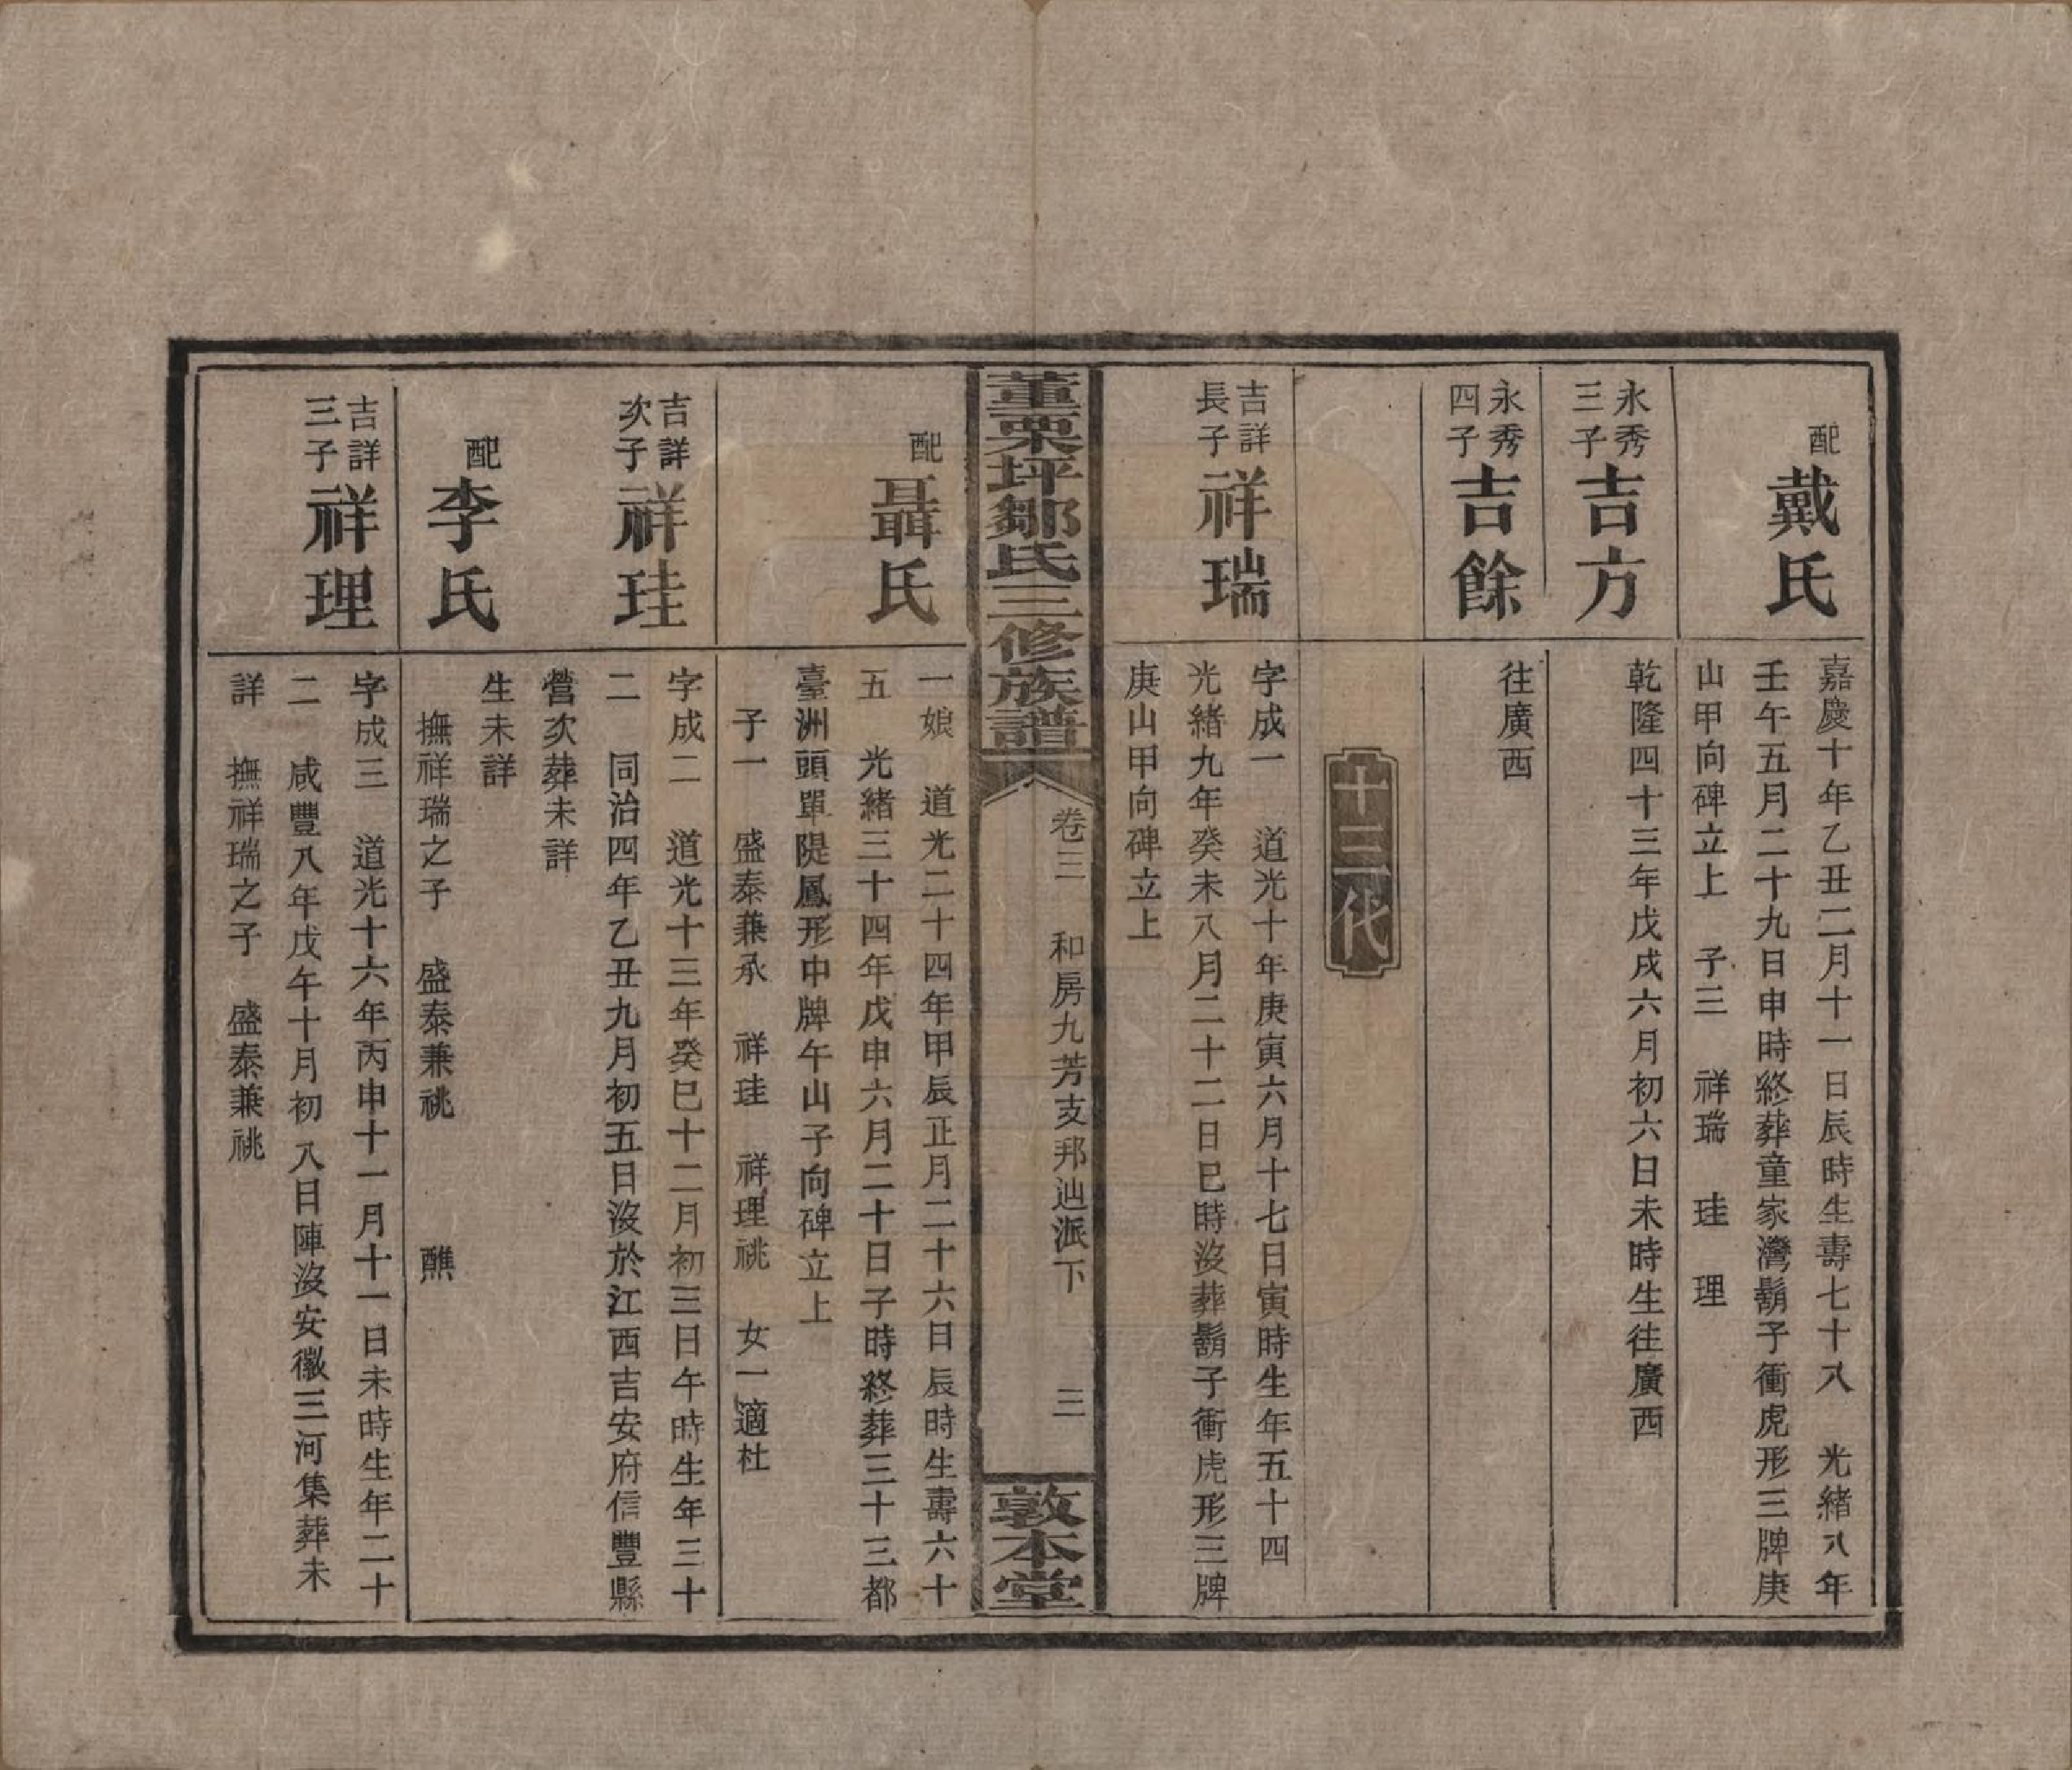 配
戴氏
嘉慶十年乙丑二月十一日辰時生壽七十八　光緒八年
壬午五月二十九日申時終葬童家灣鬍子衝虎形三牌庚
山甲向碑立上　子三　祥瑞　珪　理
永秀
三子
吉方
乾隆四十三年戊戌六月初六日未時生往廣西
永秀
四子
吉餘
往廣西
十三代
吉詳
長子
祥瑞
字成一　道光十年庚寅六月十七日寅時生年五十四
光緒九年癸未八月二十二日巳時沒葬鬍子衝虎形三牌
庚山甲向碑立上
董栗坪鄒氏三修族譜
卷三　和房九芳支邦辿派下　三
敦本堂
配
聶氏
一娘　道光二十四年甲辰正月二十六日辰時生壽六十
五　光緒三十四年戊申六月二十日子時終葬三十三都
臺洲頭單隄鳳形中牌午山子向碑立上
子一　盛泰兼承　祥珪　祥理祧　女一適杜
吉詳
次子
祥珪
字成二　道光十三年癸巳十二月初三日午時生年三十
二　同治四年乙丑九月初五日沒於江西吉安府信豐縣
營次葬未詳
配
李氏
生未詳
撫祥瑞之子　盛泰兼祧　醮
吉詳
三子
祥理
字成三　道光十六年丙申十一月十一日未時生年二十
二　咸豐八年戊午十月初八日陣沒安徽三河集葬未
詳　撫祥瑞之子　盛泰兼祧